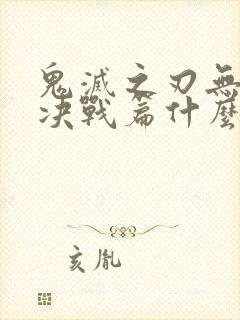 鬼滅之刃無
决戰篇什麼
亥胤